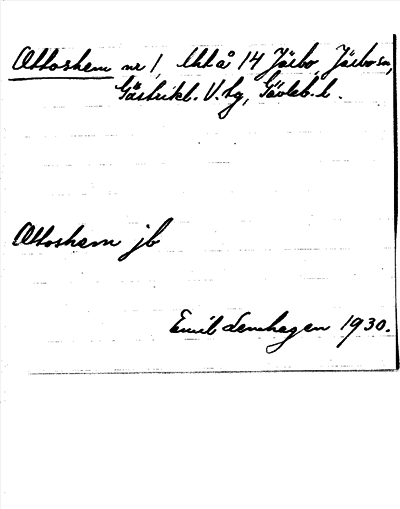 Ottoshem nr 1, Uttå 14 Järbo, Järbo sn,
Gästrikl. V. tg, Gävleb. l.
Ottoshem jb
Emil Lemhagen 1930.